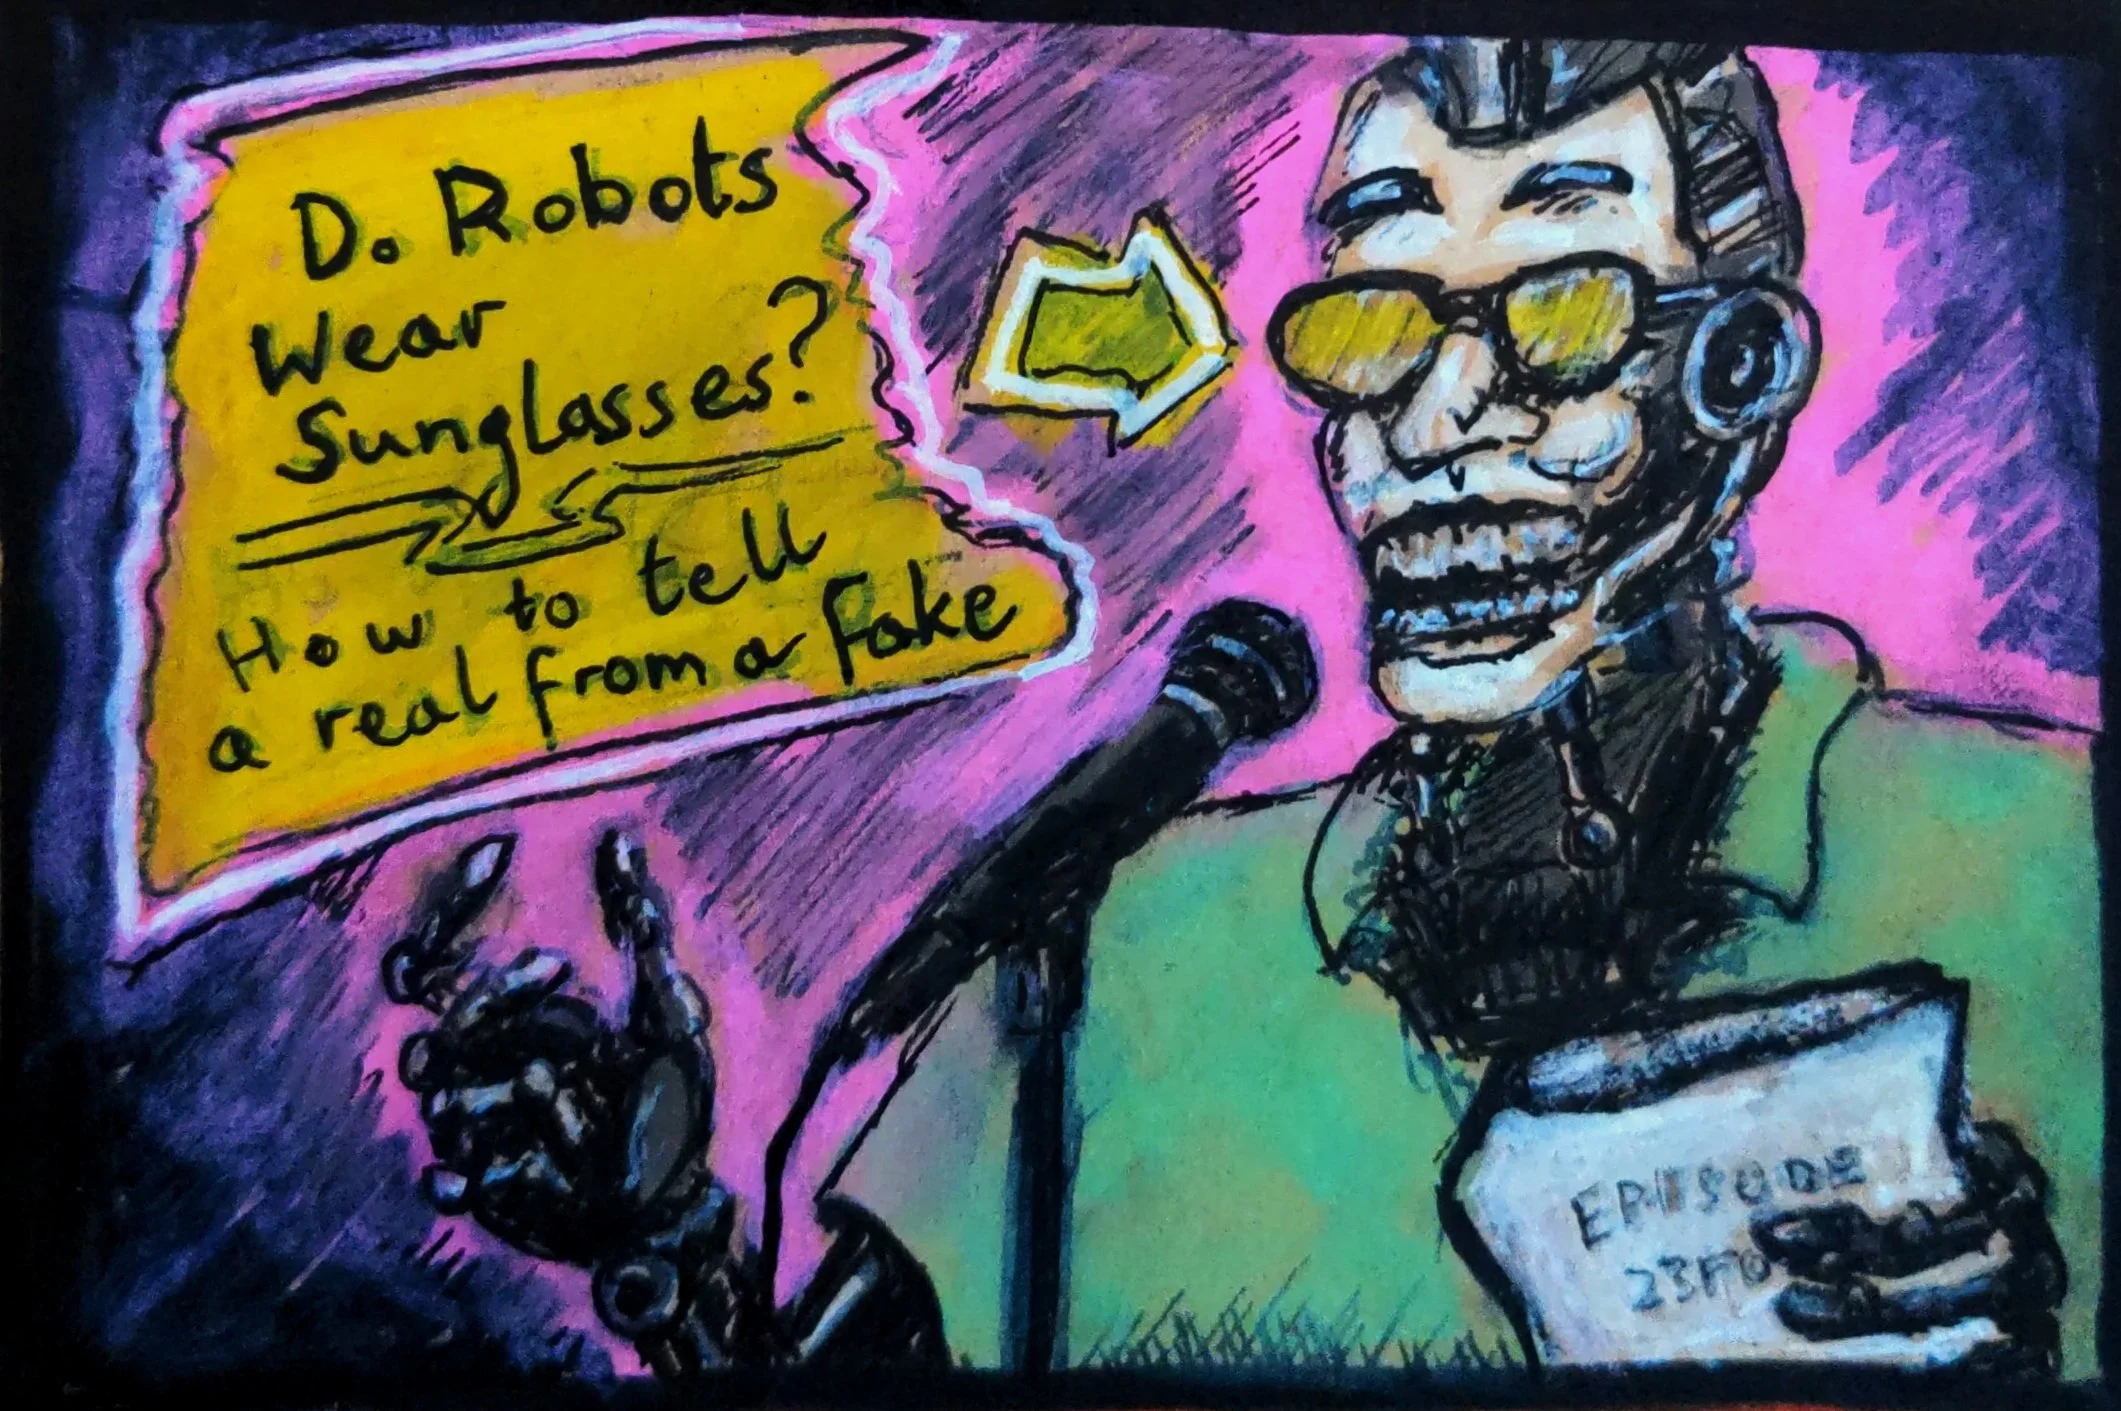 Do Robots
Wear
Sunglasses?
How to tell
a real from a fake
EPISODE